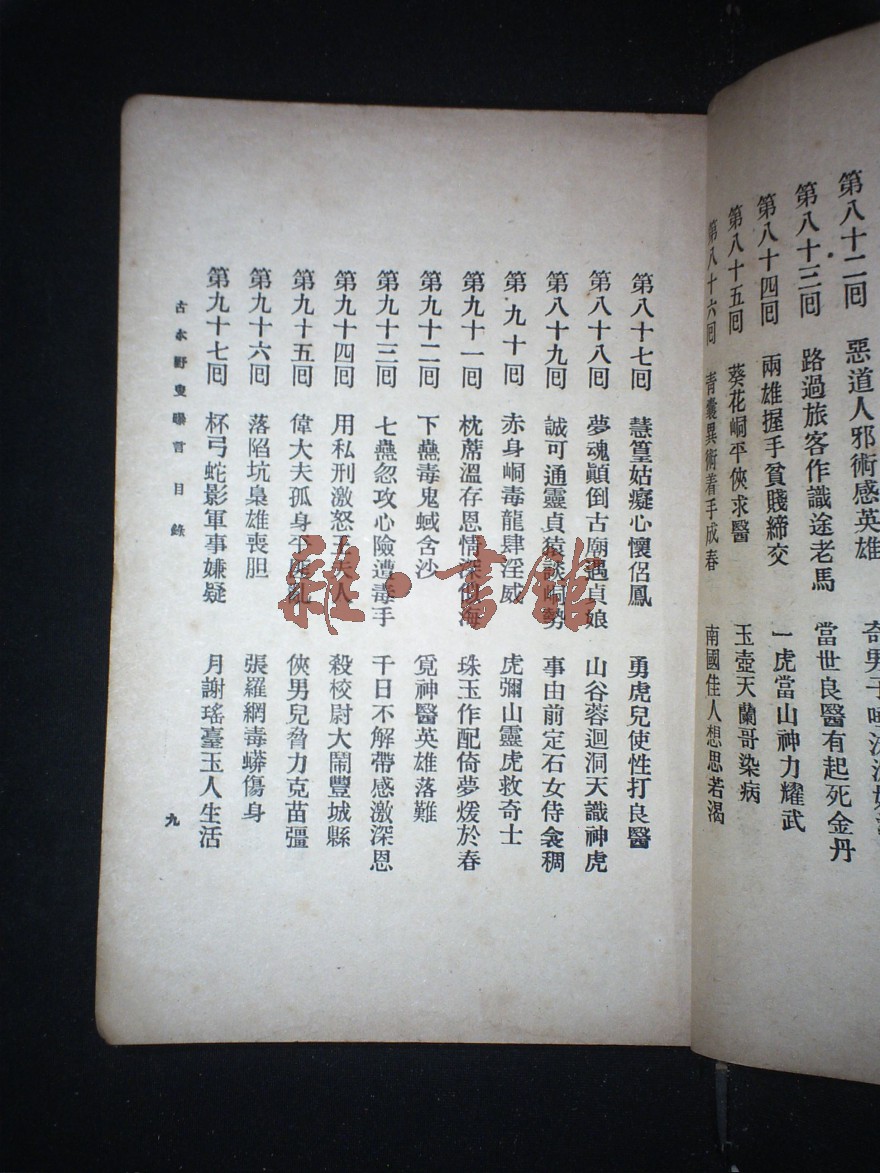 第八十二回　惡道人邪術感英雄　奇男子
第八十三回　路過旅客作識途老馬　當世良醫有起死金丹
第八十四回　兩雄握手貧賤締交　一虎當山神力耀武
第八十五回　葵花峒平俠求醫　玉壺天蘭哥染病
第八十六回　青囊異術着手成春　南國佳人想思若渴
第八十七回　慧篁姑癡心懷侶鳳　勇虎兒使性打良醫
第八十八回　夢魂顚倒古廟遇貞娘　山谷蓉迴洞天識神虎
第八十九回　誠可通靈貞猿談峒勢　事由前定石女侍衾稠
第九十回　赤身峒毒龍肆淫威　虎彌山靈虎救奇士
第九十一回　枕蓆溫存恩情深似海　珠玉作配倚夢煖於春
第九十二回　下蠱毒鬼蜮含沙　覓神醫英雄落難
第九十三回　七蠱忽攻心險遭毒手　千日不解帶感激深恩
第九十四回　用私刑激怒玉夫人　殺校尉大鬧豐城縣
第九十五回　偉大夫孤身平亂　俠男兒脅力克苗彊
第九十六回　落陷坑梟雄喪胆　張羅網毒蟒傷身
第九十七回　杯弓蛇影軍事嫌疑　月謝瑤臺玉人生活
古本野叟曝言　目錄
九
雜·書館